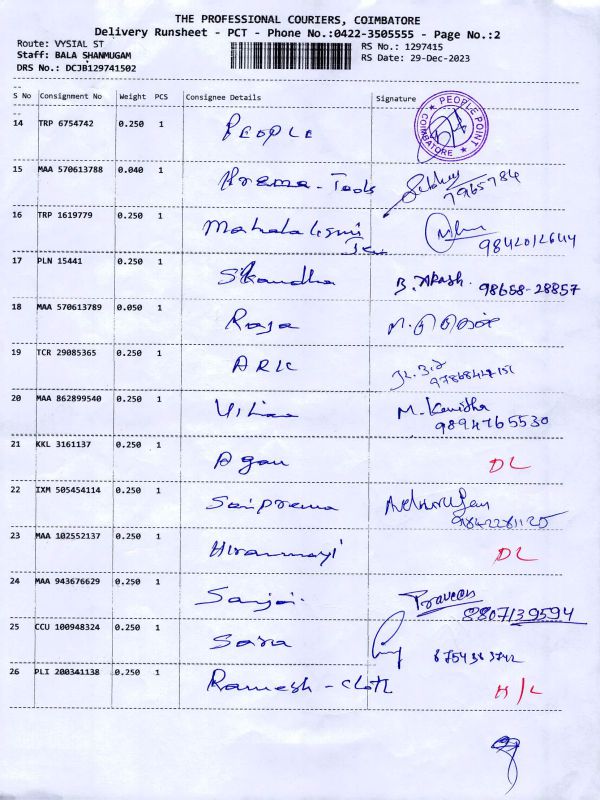 THE PROFESSIONAL COURIERS, COIMBATORE
Delivery Runsheet - PCT - Phone No.:0422-3505555 - Page No.:2
Route: VYSIAL ST
RS No.: 1297415
Staff: BALA SHANMUGAM
RS Date: 29-Dec-2023
DRS No.: DCJB129741502
S No Consignment No Weight PCS Consignee Details Signature
14 TRP 6754742 0.250 1 PEOPLE
PEOPLE POINT COIMBATORE
15 MAA 570613788 0.040 1 Prema - Tools
7965784
16 TRP 1619779 0.250 1 Mahalakshmi
17 PLN 15441 0.250 1 Skandha B. Akash. 98658-28857
18 MAA 570613789 0.050 1 Raja
19 TCR 29085365 0.250 1 ARK
20 MAA 862899540 0.250 1 M. Kavidha
9894765530
21 KKL 3161137 0.250 1 DL
22 IXM 505454114 0.250 1 Saiprema
23 MAA 102552137 0.250 1 Hiranmayi DL
24 MAA 943676629 0.250 1 Sanjai. Praveen
8807139594
25 CCU 100948324 0.250 1 Saira
26 PLI 200341138 0.250 1 Ramesh - cloth H/L